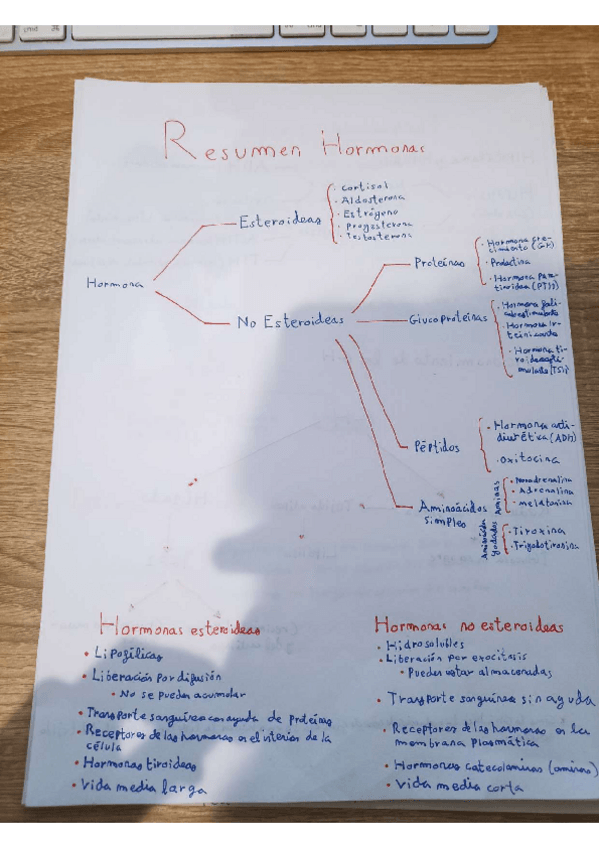 cmd
Resumen Hormonas
Hormona
Esteroideas
· Cortisol
· Aldosterona
· Estrógeno
· Progesterona
· Testosterona
No Esteroideas
Proteínas
· Hormona cre-
cimiento (GH)
· Prolactina
· Hormona para-
tiroidea (PTH)
Glucoproteínas
· Hormona
· Hormona
· Hormona ti-
Péptidos
· Hormona anti-
diurética (ADH)
· Oxitocina
Aminoácidos
simples
Aminas
· Noradrenalina
· Adrenalina
· Melatonina
Yodados
· Tiroxina
Hormonas esteroideas
• Lipofílicas
• Liberación por difusión
• No se pueden acumular
• Transporte sanguíneo con ayuda de proteínas
• Receptores de las hormonas en el interior de la
célula
• Hormonas tiroideas
• Vida media larga
Hormonas no esteroideas
• Hidrosolubles
• Liberación por exocitosis
• Pueden estar almacenadas
• Transporte sanguíneo sin ayuda
• Receptores de las hormonas en la
membrana plasmática
• Hormonas catecolaminas (aminas)
• Vida media corta